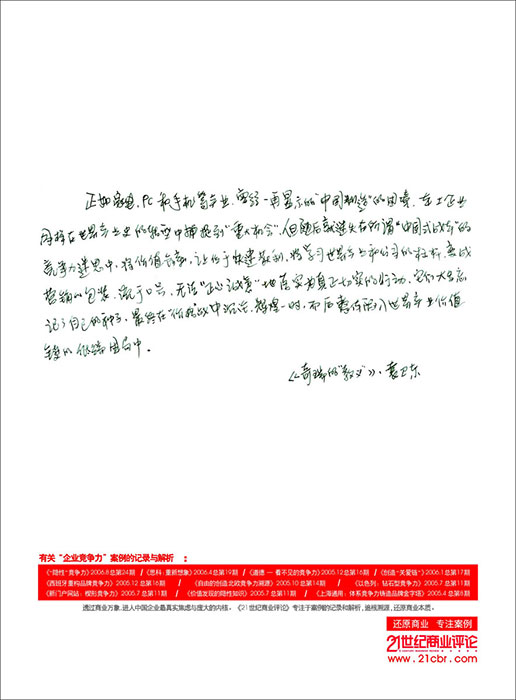 正如家电、PC和手机等产业,曾经一再显示的"中国制造"的困境,在工企业
同样在世界产业史的转型中捕捉到"重大机会",但随后就迷失在所谓"中国式战略"的
竞争力迷思中,将价值 ,让位于快速获利,将学习世界上 公司的 ,变成
营销的包装,流于口号,无法"正心诚意"地落实为真正切实的行动。它们大多忘
记了自己的 ,最终在"价格战"中沉沦,辉煌一时,而后暂停 入世界产业价值
链的低端困局中。
《奇瑞的"教义"》,袁卫东
有关"企业竞争力"案例的记录与解析 :
《"隐性"竞争力》2006.8总第24期 /《思科:重新想象》2006.4总第19期 /《道德 — 看不见的竞争力》2005.12总第16期 /《创造"关爱链"》2006.1总第17期
《西班牙重构品牌竞争力》2005.12 总第16期 /《自由的创造北欧竞争力溯源》2005.10 总第14期 /《以色列:钻石型竞争力》2005.7 总第11期
《新门户网站:楔形竞争力》2005.7 总第11期 /《价值发现的隐性知识》2005.7 总第11期 /《上海通用:体系竞争力铸造品牌金字塔》2005.4 总第8期
透过商业万象,进入中国企业最真实焦虑与庞大的内核。《21世纪商业评论》专注于案例的记录和解析,追根溯源,还原商业本质。
还原商业 专注案例
21世纪商业评论
www.21cbr.com